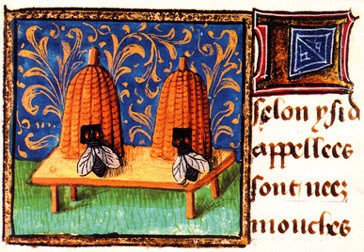 selon ysid
appellees
sont neez
mouches